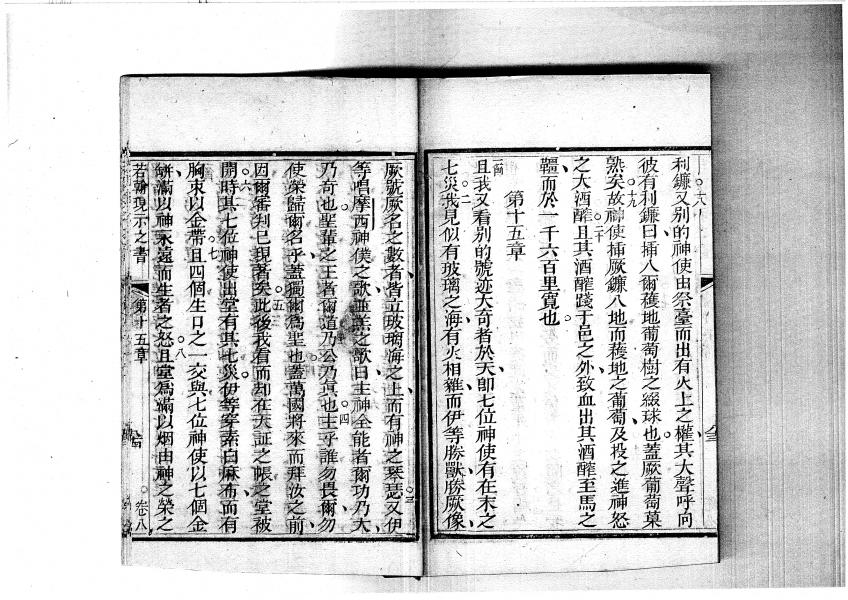 利鐮又别的神使由祭臺而出有火上之權其大聲呼向
彼有利鐮曰揷入爾鐮穫地葡萄樹之綴球也蓋厥葡萄菓
熟矣故神使揷厥鐮入地而穫地之葡萄及投之進神怒
之大酒醡且其酒醡踐于邑之外致血出其酒醡至馬之
韁而於一千六百里寬也
第十五章
且我又看别的號迹大奇者於天卽七位神使有在末之
七災我見似有玻璃之海有火相雜而伊等勝獸勝厥像
厥號厥名之數者皆立玻璃海之上而有神之琴瑟又伊
等唱摩西神僕之歌並羔之歌曰主神全能者爾功乃大
乃奇也聖輩之王者爾道乃公乃眞也主乎誰勿畏爾勿
使榮歸爾名乎蓋獨爾爲聖也蓋萬國將來而拜汝之前
因爾審判已現著矣此後我看而却在天証之帳之堂被
開時其七位神使出堂有其七災伊等穿素白麻布而有
胸束以金帶且四個生口之一交與七位神使以七個金
缾滿以神永遠而生者之怒且堂爲滿以烟由神之榮之
若翰現示之書
第十五章
卷八